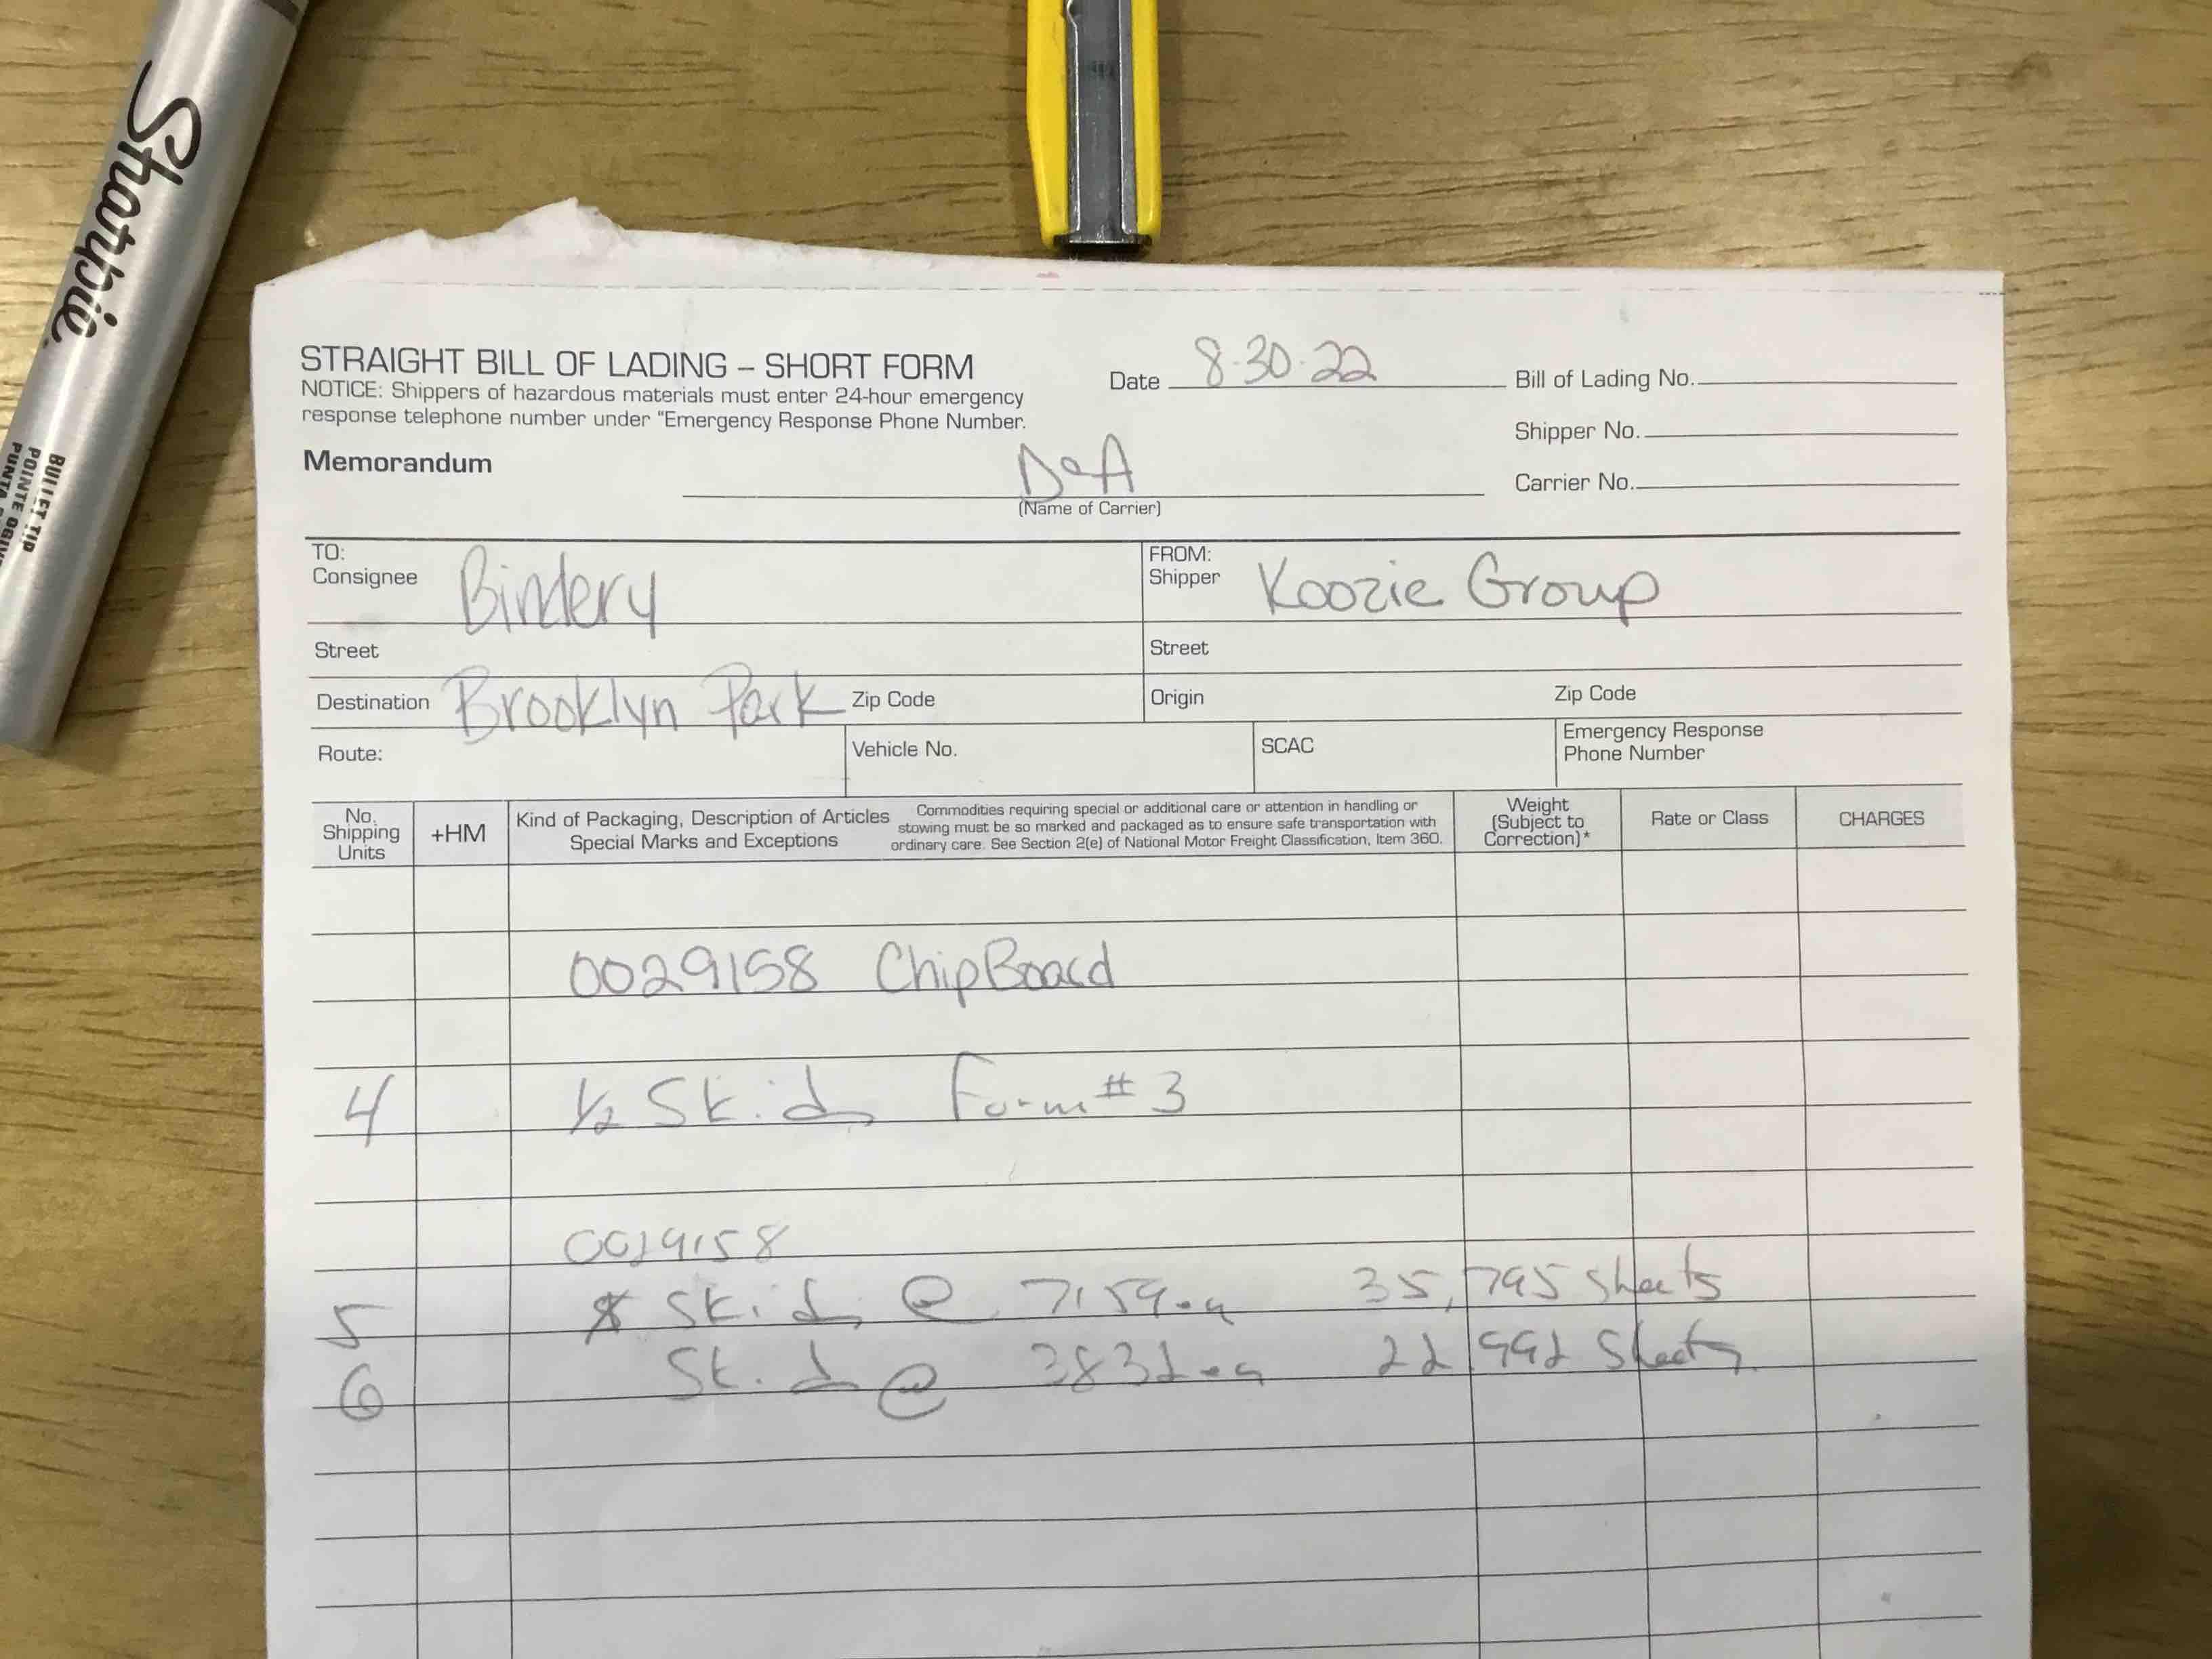 Sharpie.
BULLET TIP
STRAIGHT BILL OF LADING – SHORT FORM
NOTICE: Shippers of hazardous materials must enter 24-hour emergency
response telephone number under "Emergency Response Phone Number.
Memorandum
Date 8-30-22
Bill of Lading No.
Shipper No.
Carrier No.
D&A
(Name of Carrier)
TO:
Consignee Bindery
FROM:
Shipper Koozie Group
Street
Street
Destination Brooklyn Park Zip Code
Origin Zip Code
Route:
Vehicle No.
SCAC
Emergency Response
Phone Number
No.
Shipping
Units
+HM
Kind of Packaging, Description of Articles
Special Marks and Exceptions
Commodities requiring special or additional care or attention in handling or
stowing must be so marked and packaged as to ensure safe transportation with
ordinary care. See Section 2(e) of National Motor Freight Classification, Item 360.
Weight
(Subject to
Correction)*
Rate or Class
CHARGES
0029158 ChipBoard
4 1/2 Skids Form # 3
0029158
5 Skids @ 7159 ea 35,795 sheets
6 Skids @ 3832 ea 22,992 Sheets